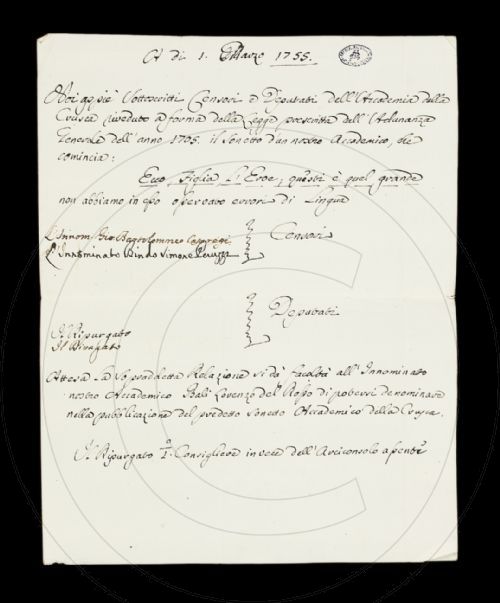 A dì 1. Marzo 1755.
Noi appiè sottoscritti Censori e Deputati dell'Accademia della
Crusca riveduto a forma della Legge prescritta dell'Adunanza
Generale dell'anno 1705. il Sonetto d'un nostro Accademico, che
comincia:
Ecco, Figlia d'Eroe, questi è quel grande
non abbiamo in esso osservato errori di Lingua
L'Innom. Gio. Bartolommeo Casaregi
L'Innominato Bindo Simone Peruzzi
Censori
Deputati
Il Ripurgato
Il Divagato
Attesa la sopraddetta Relazione si dà facoltà all'Innominato
nostro Accademico Balì Lorenzo del Rosso di potersi denominare
nella pubblicazione del predetto sonetto Accademico della Crusca.
Il Ripurgato Iº. Consigliere in vece dell'Arciconsolo assente